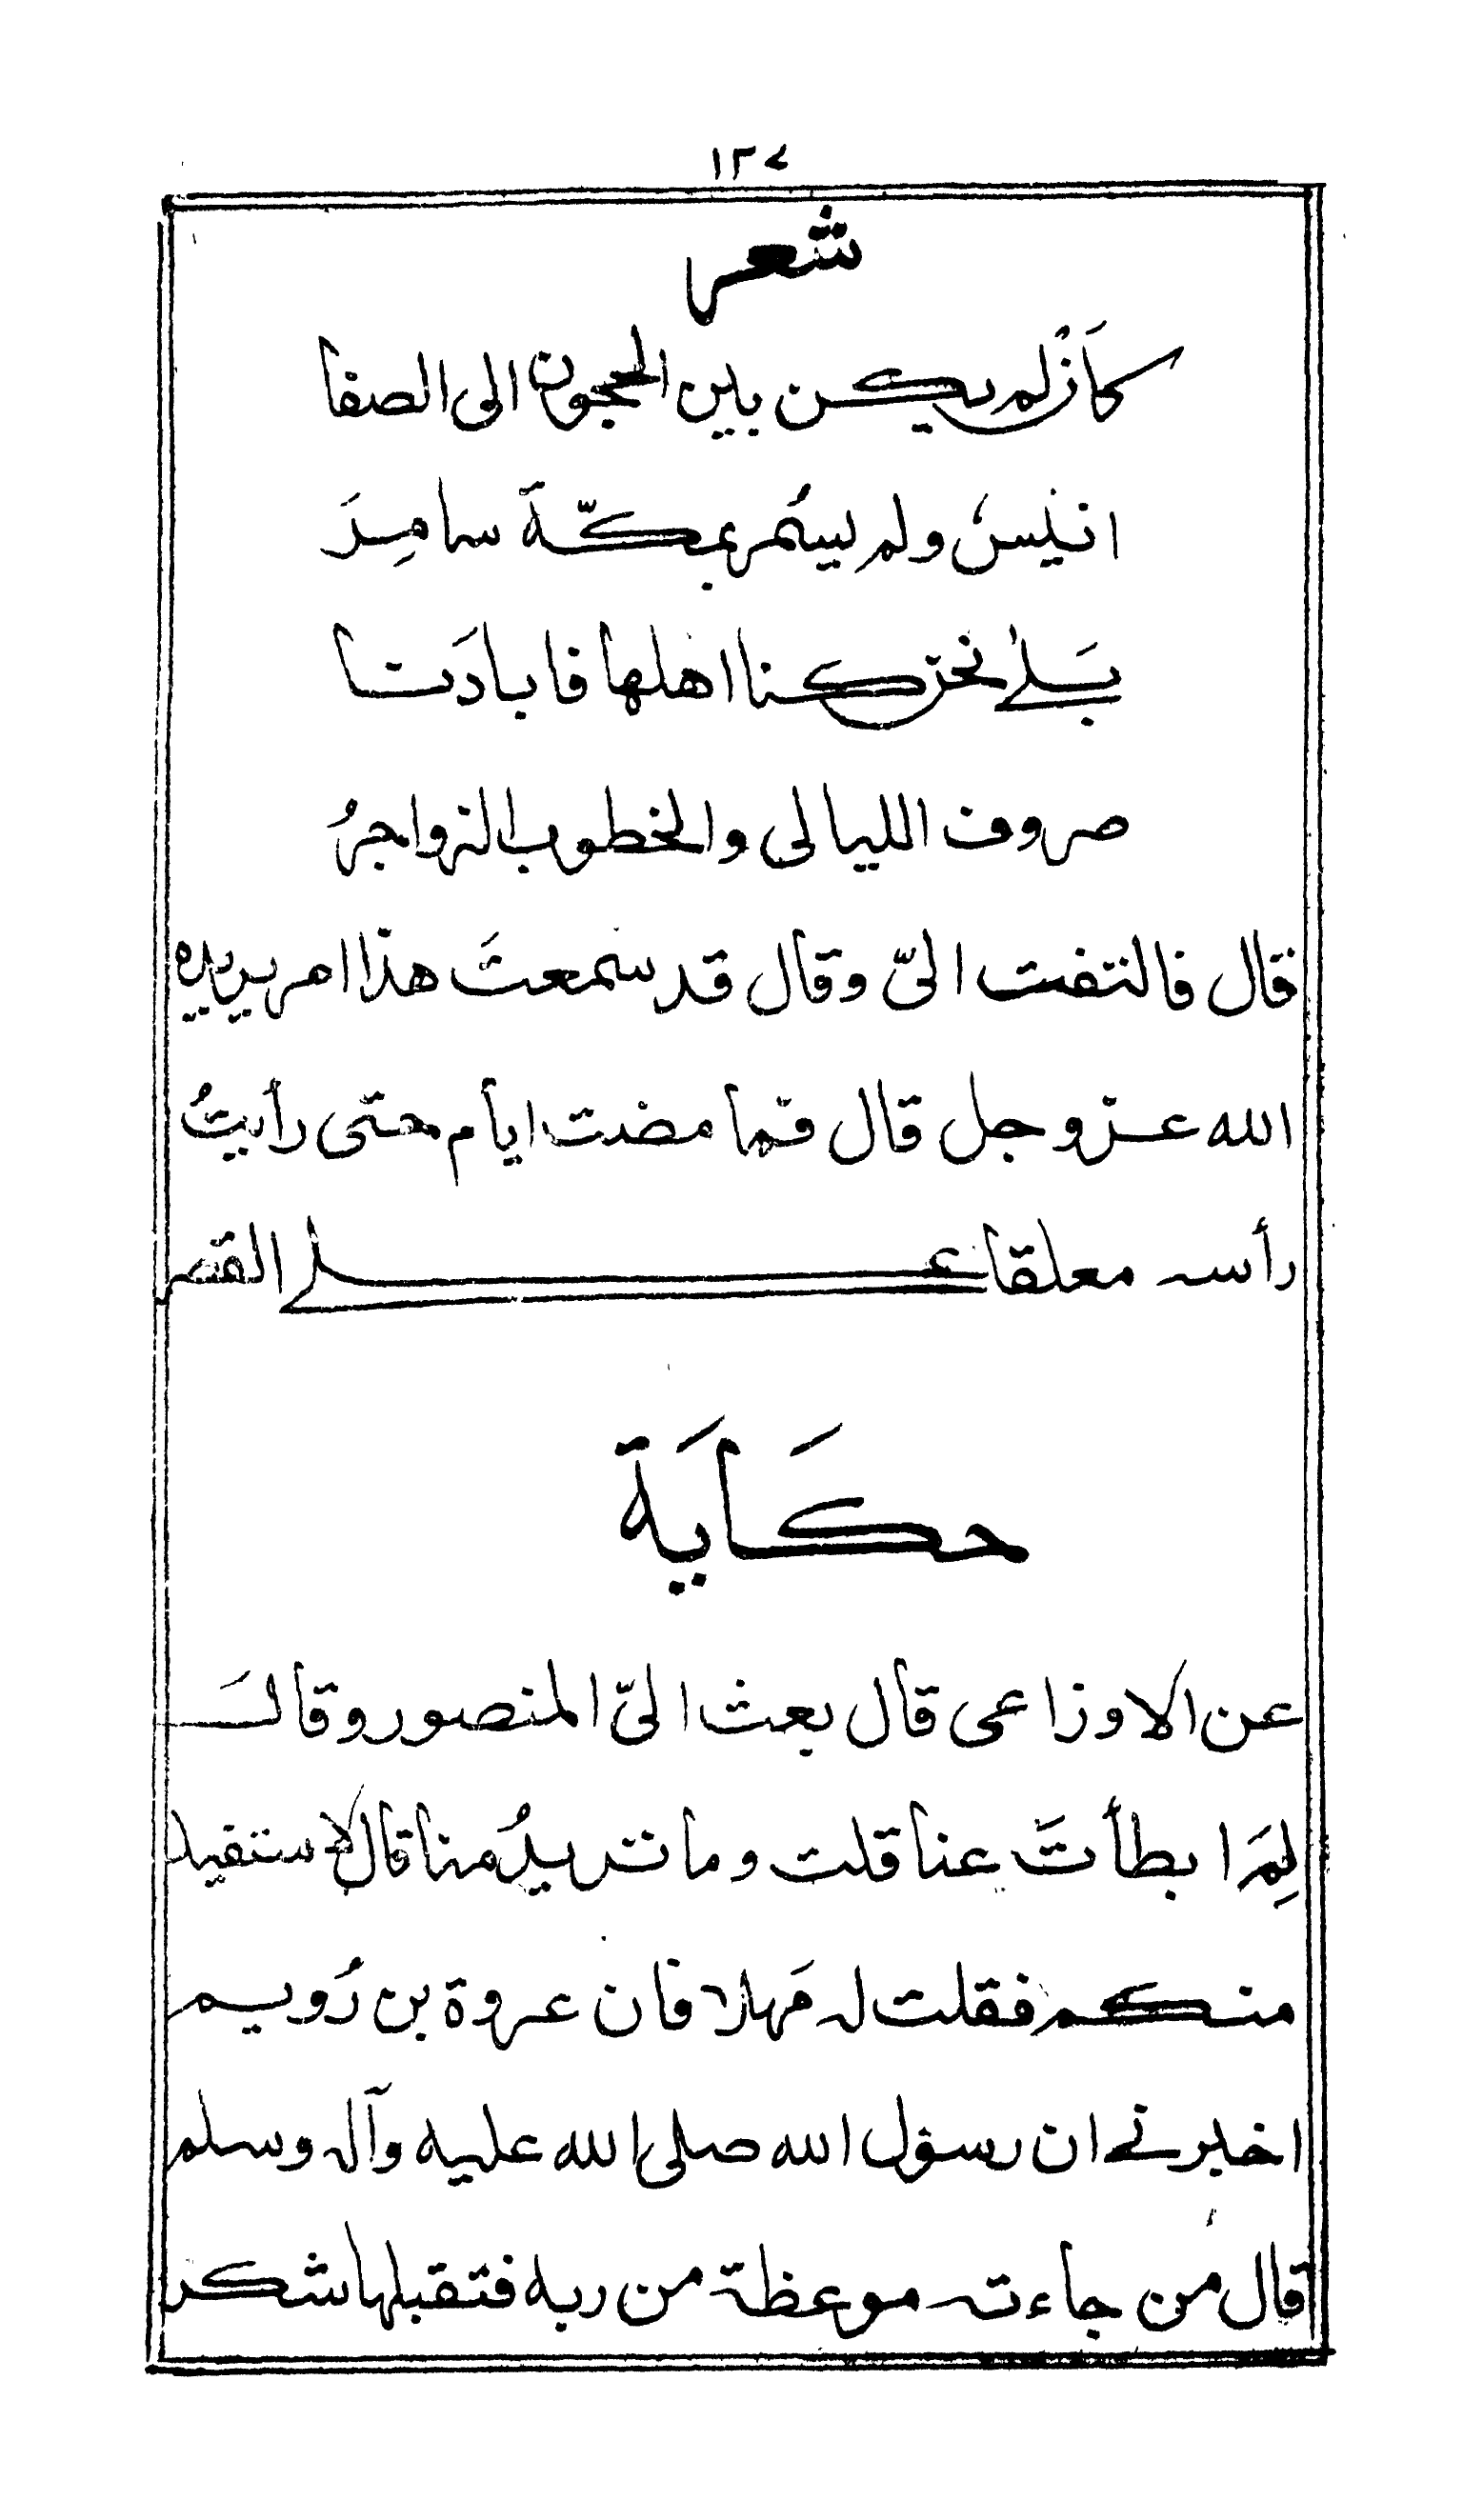 ١٢٤
شعر
كأن لم يكن بين الحجون الى الصفا
انيسٌ ولم يسمُر بمكّةَ سامِرَ
بَلى نحن كنا اهلها فابادَتنا
صروف الليالى والخطوب الزواجرُ
قال فالتفت الىّ وقال قد سمعتَ هذا امر يريده
الله عزوجل قال فما مضت ايام حتى رأيتُ
رأسه معلقا على القصر
حكَايَة
عن الاوزاعى قال بعث الىّ المنصور وقالَ
لِمَ ابطأتَ عنا قلت وما تريدُ منا قال لاستفيد
منكم فقلت له مَهلا فان عروة بن رُويم
اخبرنے ان رسول الله صلى الله عليه وآله وسلم
قال من جاءته موعظة من ربه فتقبلها شكر